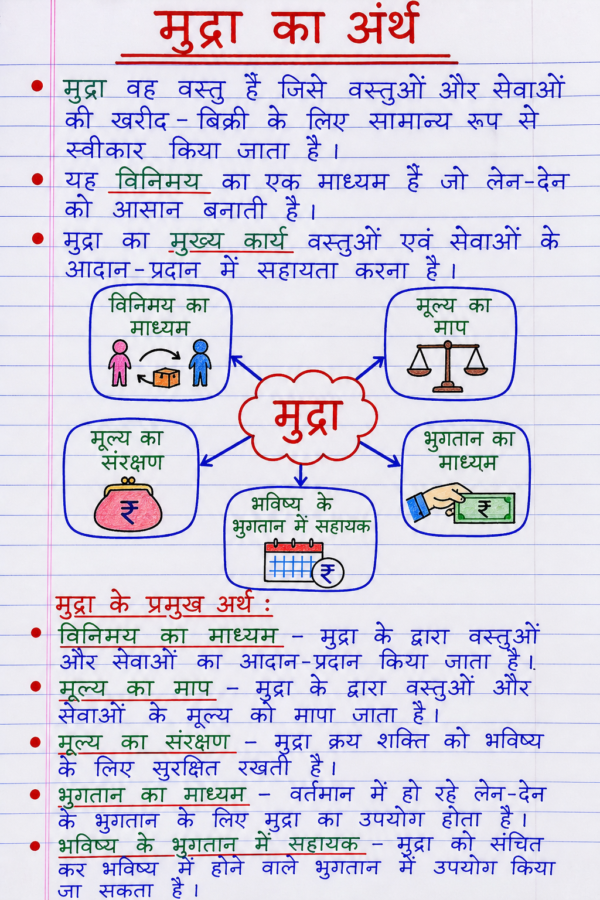 मुद्रा का अंर्थ
• मुद्रा वह वस्तु हैं जिसे वस्तुओं और सेवाओं
की खरीद - बिक्री के लिए सामान्य रूप से
स्वीकार किया जाता है।
• यह विनिमय का एक माध्यम हैं जो लेन-देन
को आसान बनाती है।
• मुद्रा का मुख्य कार्य वस्तुओं एवं सेवाओं के
आदान-प्रदान में सहायता करना है।
विनिमय का
माध्यम
मूल्य का
माप
मुद्रा
मूल्य का
संरक्षण
₹
भुगतान का
माध्यम
₹
भविष्य के
भुगतान में सहायक
₹
मुद्रा के प्रमुख अर्थ :
• विनिमय का माध्यम – मुद्रा के द्वारा वस्तुओं
और सेवाओं का आदान-प्रदान किया जाता है।
• मूल्य का माप – मुद्रा के द्वारा वस्तुओं और
सेवाओं के मूल्य को मापा जाता है।
• मूल्य का संरक्षण – मुद्रा क्रय शक्ति को भविष्य
के लिए सुरक्षित रखती है।
• भुगतान का माध्यम – वर्तमान में हो रहे लेन-देन
के भुगतान के लिए मुद्रा का उपयोग होता है।
• भविष्य के भुगतान में सहायक – मुद्रा को संचित
कर भविष्य में होने वाले भुगतान में उपयोग किया
जा सकता है।